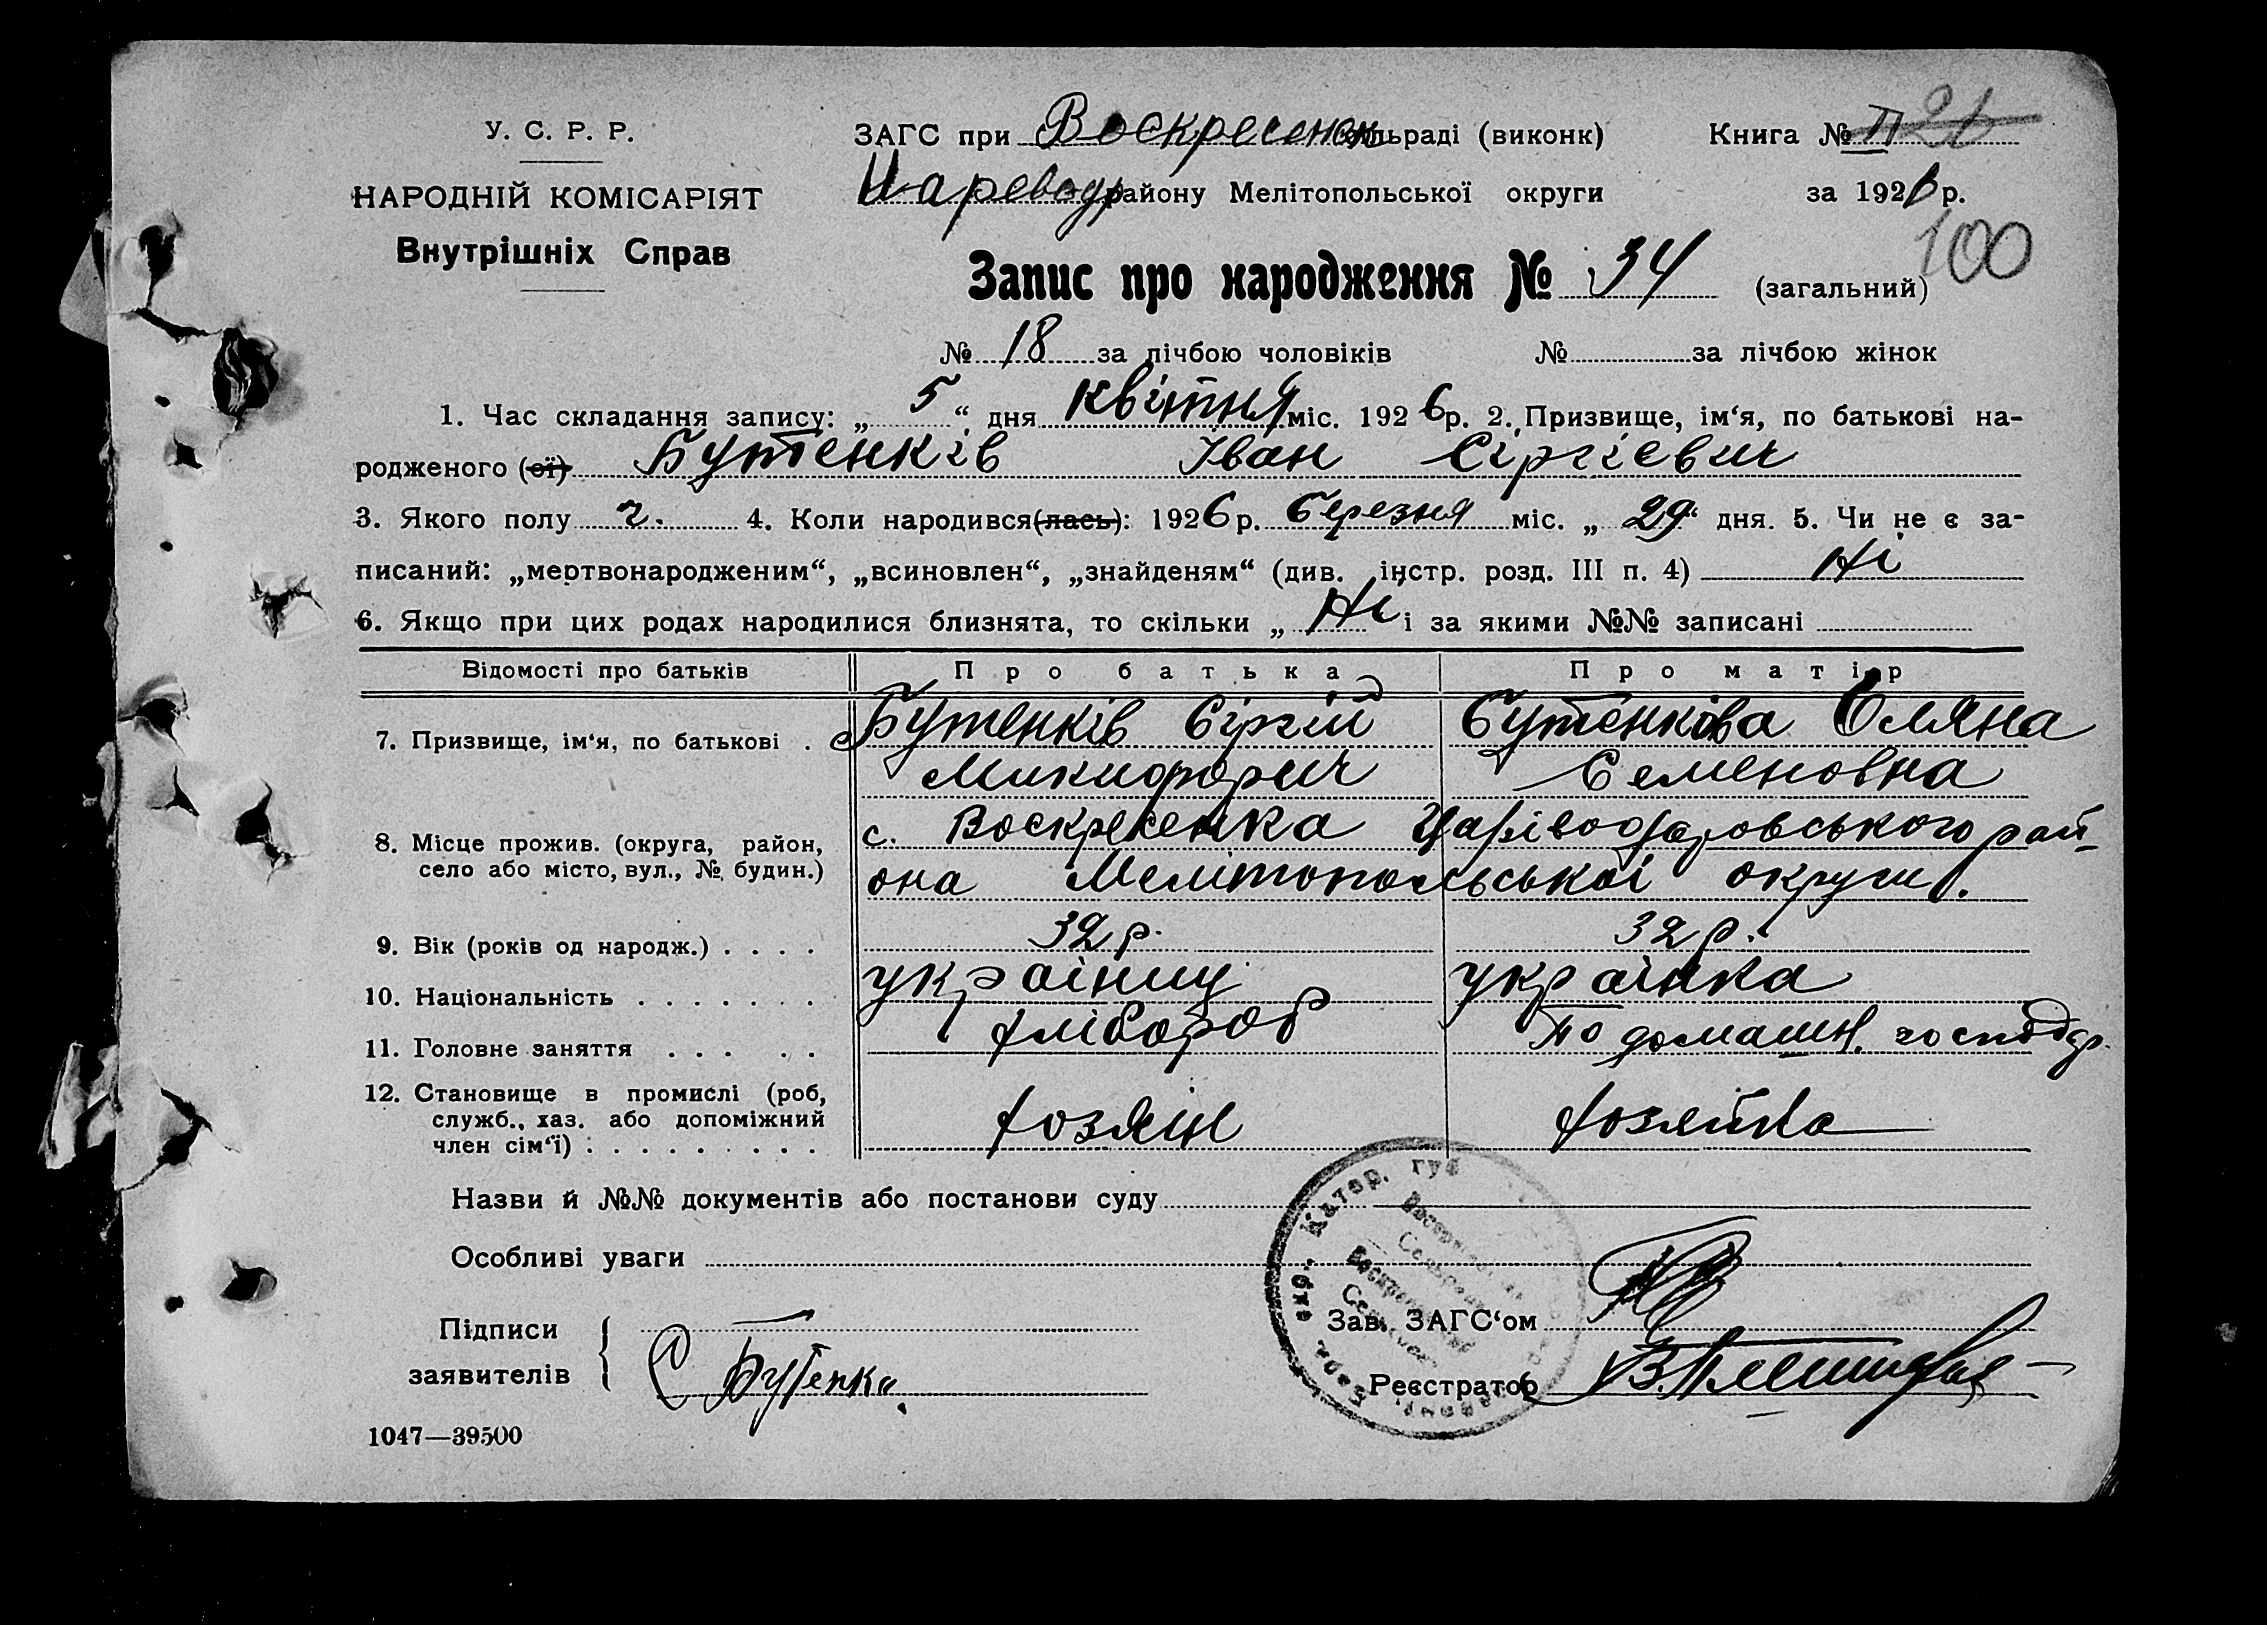 У. С. Р. Р.
НАРОДНІЙ КОМІСАРІЯТ
Внутрішніх Справ
ЗАГС при Воскресенск сільраді (виконк)
Книга № II 21
Цареводр району Мелітопольської округи
за 1926 р.
100
Запис про народження № 34 (загальний)
№ 18 за лічбою чоловіків № за лічбою жінок
1. Час складання запису: „ 5 “ дня квітня міс. 1926 р. 2. Призвище, ім‘я, по батькові на-
родженого (ої) Бутенків Іван Сіргієвич
3. Якого полу ч. 4. Коли народився(лась): 1926 р. березня міс. „ 29 “ дня. 5. Чи не є за-
писаний: „мертвонародженим“, „всиновлен“, „знайденям“ (див. інстр. розд. III п. 4) Ні
6. Якщо при цих родах народилися близнята, то скільки „ Ні і за якими №№ записані
Відомості про батьків Про батька Про матір
7. Призвище, ім‘я, по батькові . Бутенків Сіргій Бутенкова Оляна
Микифорич Семеновна
8. Місце прожив. (округа, район, с. Воскресенка Царіводаровського рай-
село або місто, вул., № будин.) она Мелітопольської округи.
9. Вік (років од народж.) . . . . 32 р. 32 р.
10. Національність . . . . . . . україниц українка
11. Головне заняття . . . . . хлібороб по домашн. господр.
12. Становище в промислі (роб,
служб., хаз. або допоміжний хозяін хозяйка
член сім‘ї) . . . . . . . . .
Назви й №№ документів або постанови суду
Особливі уваги
Катер. губ
Зав. ЗАГС‘ом
Підписи
заявителів С Бутенк
Реєстратор
1047—39500